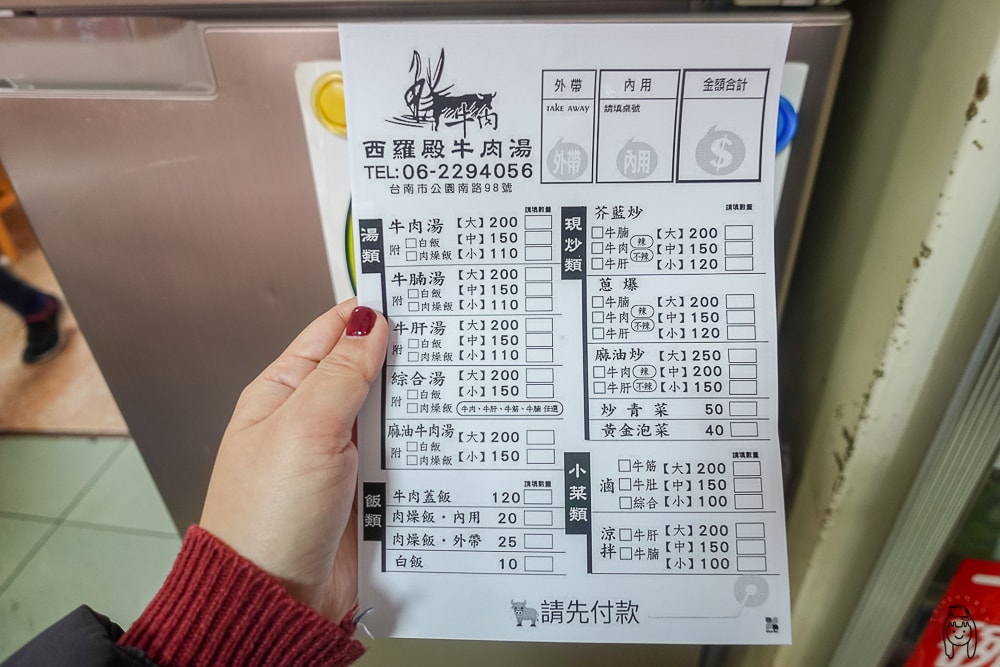 鮮
牛肉
西羅殿牛肉湯
TEL:06-2294056
台南市公園南路98號
外帶 內用 金額合計
TAKE AWAY 請填桌號
外帶 內用 $
湯類
請填數量
牛肉湯【大】200
附 □白飯【中】150
□肉燥飯【小】110
牛腩湯【大】200
附 □白飯【中】150
□肉燥飯【小】110
牛肝湯【大】200
附 □白飯【中】150
□肉燥飯【小】110
綜合湯【大】200
附 □白飯【小】150
□肉燥飯 牛肉、牛肝、牛筋、牛腩 任選
麻油牛肉湯【大】200
附 □白飯
□肉燥飯【小】150
飯類
請填數量
牛肉蓋飯 120
肉燥飯・內用 20
肉燥飯・外帶 25
白飯 10
現炒類
請填數量
芥藍炒
□牛腩【大】200
□牛肉 辣 不辣【中】150
□牛肝【小】120
蔥爆
□牛腩【大】200
□牛肉 辣 不辣【中】150
□牛肝【小】120
麻油炒【大】250
□牛肉 辣【中】200
□牛肝 不辣【小】150
炒青菜 50
黃金泡菜 40
小菜類
請填數量
滷 □牛筋【大】200
□牛肚【中】150
□綜合【小】100
涼拌 □牛肝【大】200
□牛腩【中】150
【小】100
請先付款